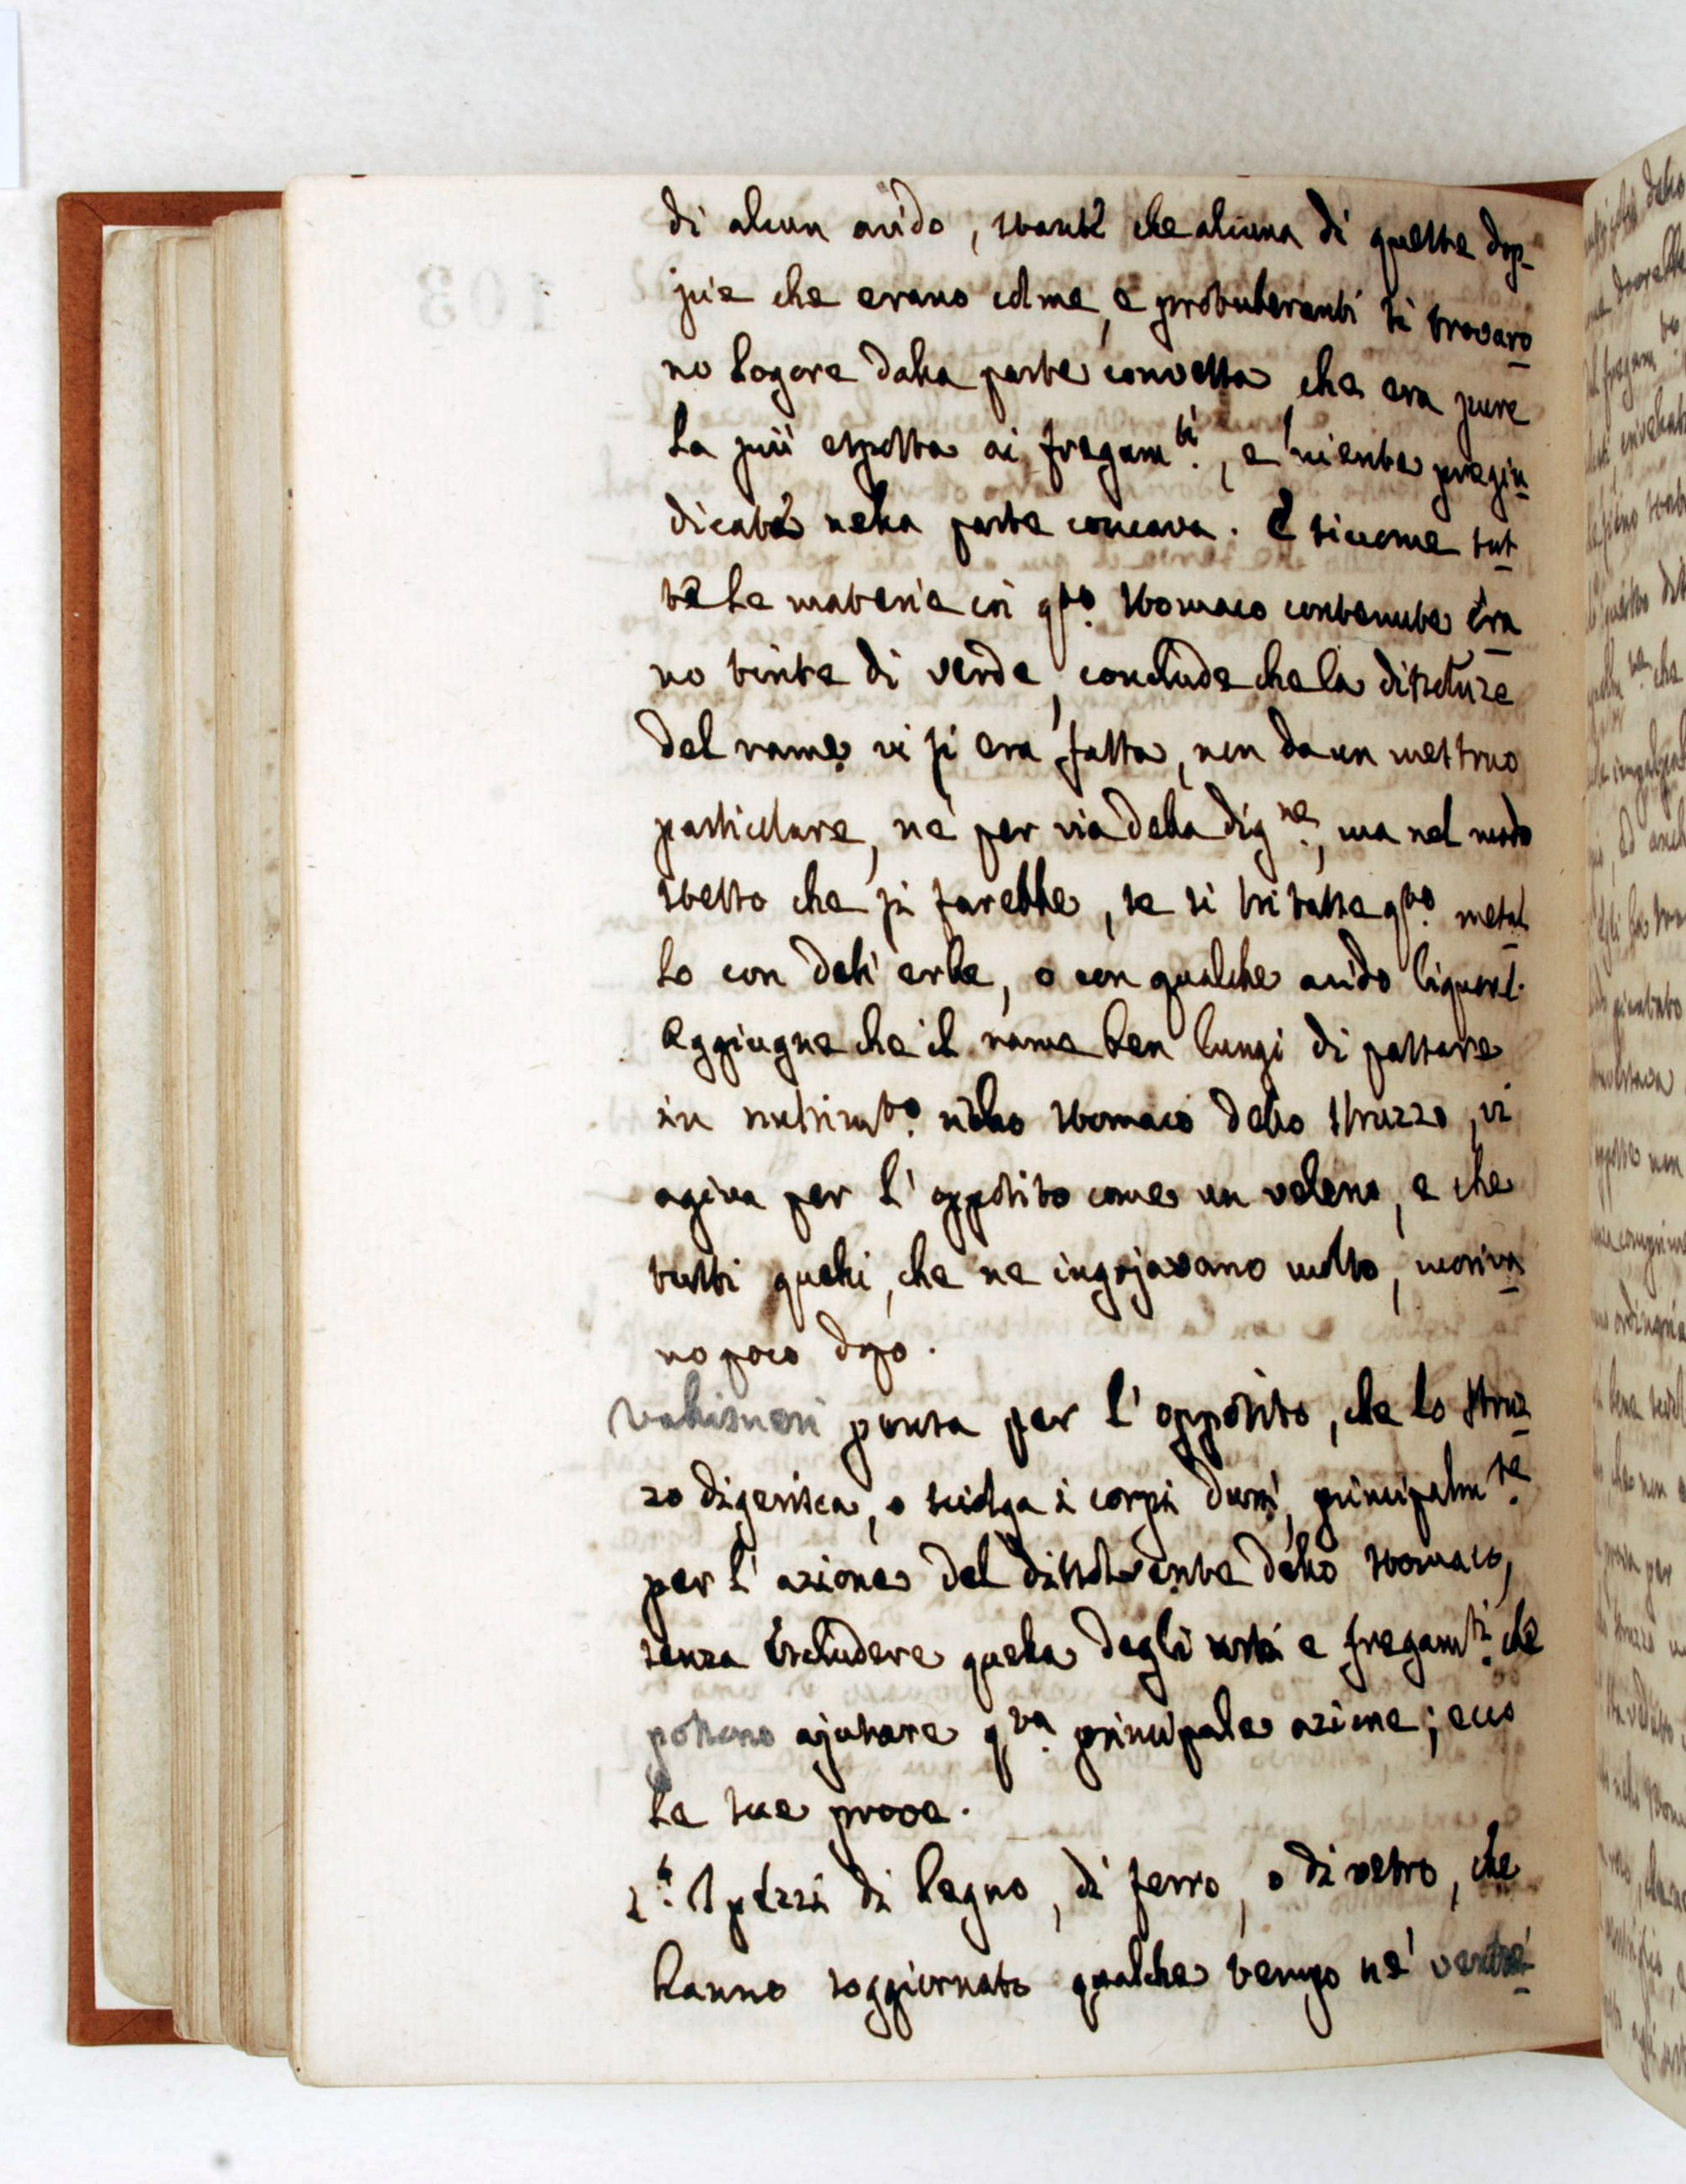 di alcun acido, stantè che alcuna di queste dop-
pie che erano colme, e protuberanti si trovaro
no logore dalla parte convessa che era pure
la più esposta ai fregam.ti, e niente pregiu
dicate nella parte concava. E siccome tut
te le materie in q.to stomaco contenute era
no tinte di verde, conclude che la dissoluze
del rame vi si era fatta, non da un mestruo
particolare, né per via della dig.ne, ma nel modo
stesso che si farebbe, se si tritasse q.to metal
lo con dell' erbe, o con qualche acido liquore.
Aggiugne che il rame ben lungi di passare
in nutrim.to nello stomaco dello struzzo, vi
agiva per l' opposito come un veleno, e che
tutti quelli, che ne ingojavano molto, moriva
no poco dopo.
Vallisneri pensa per l' opposito, che lo struz
zo digerisca, o sciolga i corpi duri, principalm.te
per l' azione del dissolvente dello stomaco,
senza escludere quella degli urti e fregam.ti che
possono ajutare q.ta principale azione; ecco
le sue prove.
1.a I pezzi di legno, di ferro, o di vetro, che
hanno soggiornato qualche tempo ne' ventri